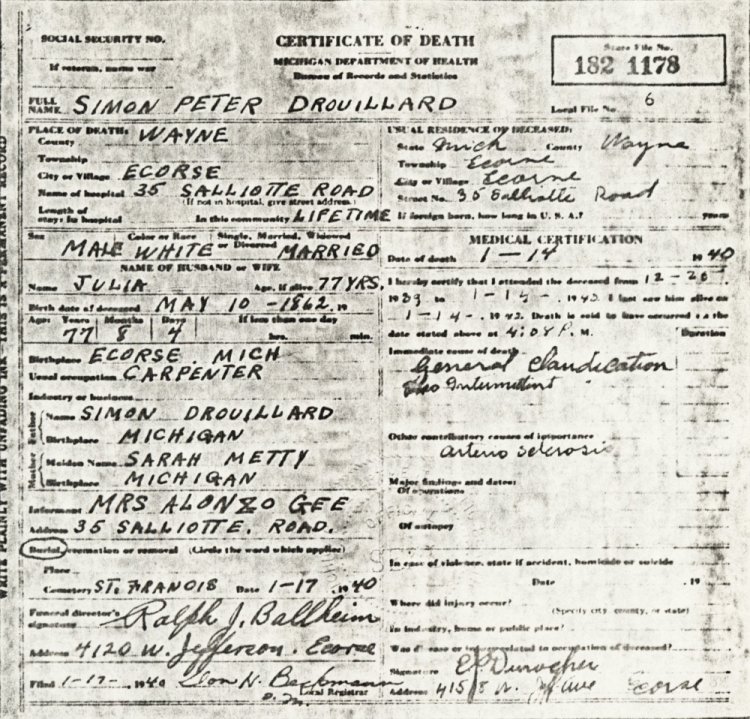 SOCIAL SECURITY NO.
If veteran, name war
CERTIFICATE OF DEATH
MICHIGAN DEPARTMENT OF HEALTH
Bureau of Records and Statistics
State File No.
182 1178
Local File No. 6
FULL NAME SIMON PETER DROUILLARD
PLACE OF DEATH:
County WAYNE
Township
City or Village ECORSE
Name of hospital 35 SALLIOTTE ROAD
(If not in hospital, give street address.)
Length of stay: In hospital In this community LIFETIME
USUAL RESIDENCE OF DECEASED:
State Mich County Wayne
Township Ecorse
City or Village Ecorse
Street No. 35 Salliotte Road
If foreign born, how long in U. S. A.? years
Sex MALE Color or Race WHITE Single, Married, Widowed or Divorced MARRIED
NAME OF HUSBAND or WIFE
Name JULIA Age, if alive 77 YRS,
Birth date of deceased MAY 10 - 1862, 19
Age: Years Months Days If less than one day
77 8 4 hrs. min.
Birthplace ECORSE MICH
Usual occupation CARPENTER
Industry or business
Father Name SIMON DROUILLARD
Birthplace MICHIGAN
Mother Maiden Name SARAH METTY
Birthplace MICHIGAN
Informant MRS ALONZO GEE
Address 35 SALLIOTTE. ROAD.
Burial, cremation or removal (Circle the word which applies)
Place
Cemetery ST. FRANCIS Date 1-17 1940
Funeral director's signature Ralph J. Ballheim
Address 4120 W. Jefferson. Ecorse
Filed 1-17-, 1940 Don H. Beckmann
Local Registrar
MEDICAL CERTIFICATION
Date of death 1-14 1940
I hereby certify that I attended the deceased from 12-26
1939 to 1-14, 1940 I last saw him alive on
1-14-, 1940. Death is said to have occurred on the
date stated above at 4:08 P. M. Duration
Immediate cause of death
General Claudication
Intermittent
Other contributory causes of importance
arterio sclerosis
Major findings and dates:
Of operations
Of autopsy
In case of violence, state if accident, homicide or suicide
Date , 19
Where did injury occur?
(Specify city, county, or state)
In industry, home or public place?
Was disease or injury related to occupation of deceased?
Signature Durocher
Address Ecorse
WRITE PLAINLY WITH UNFADING INK - THIS IS A PERMANENT RECORD